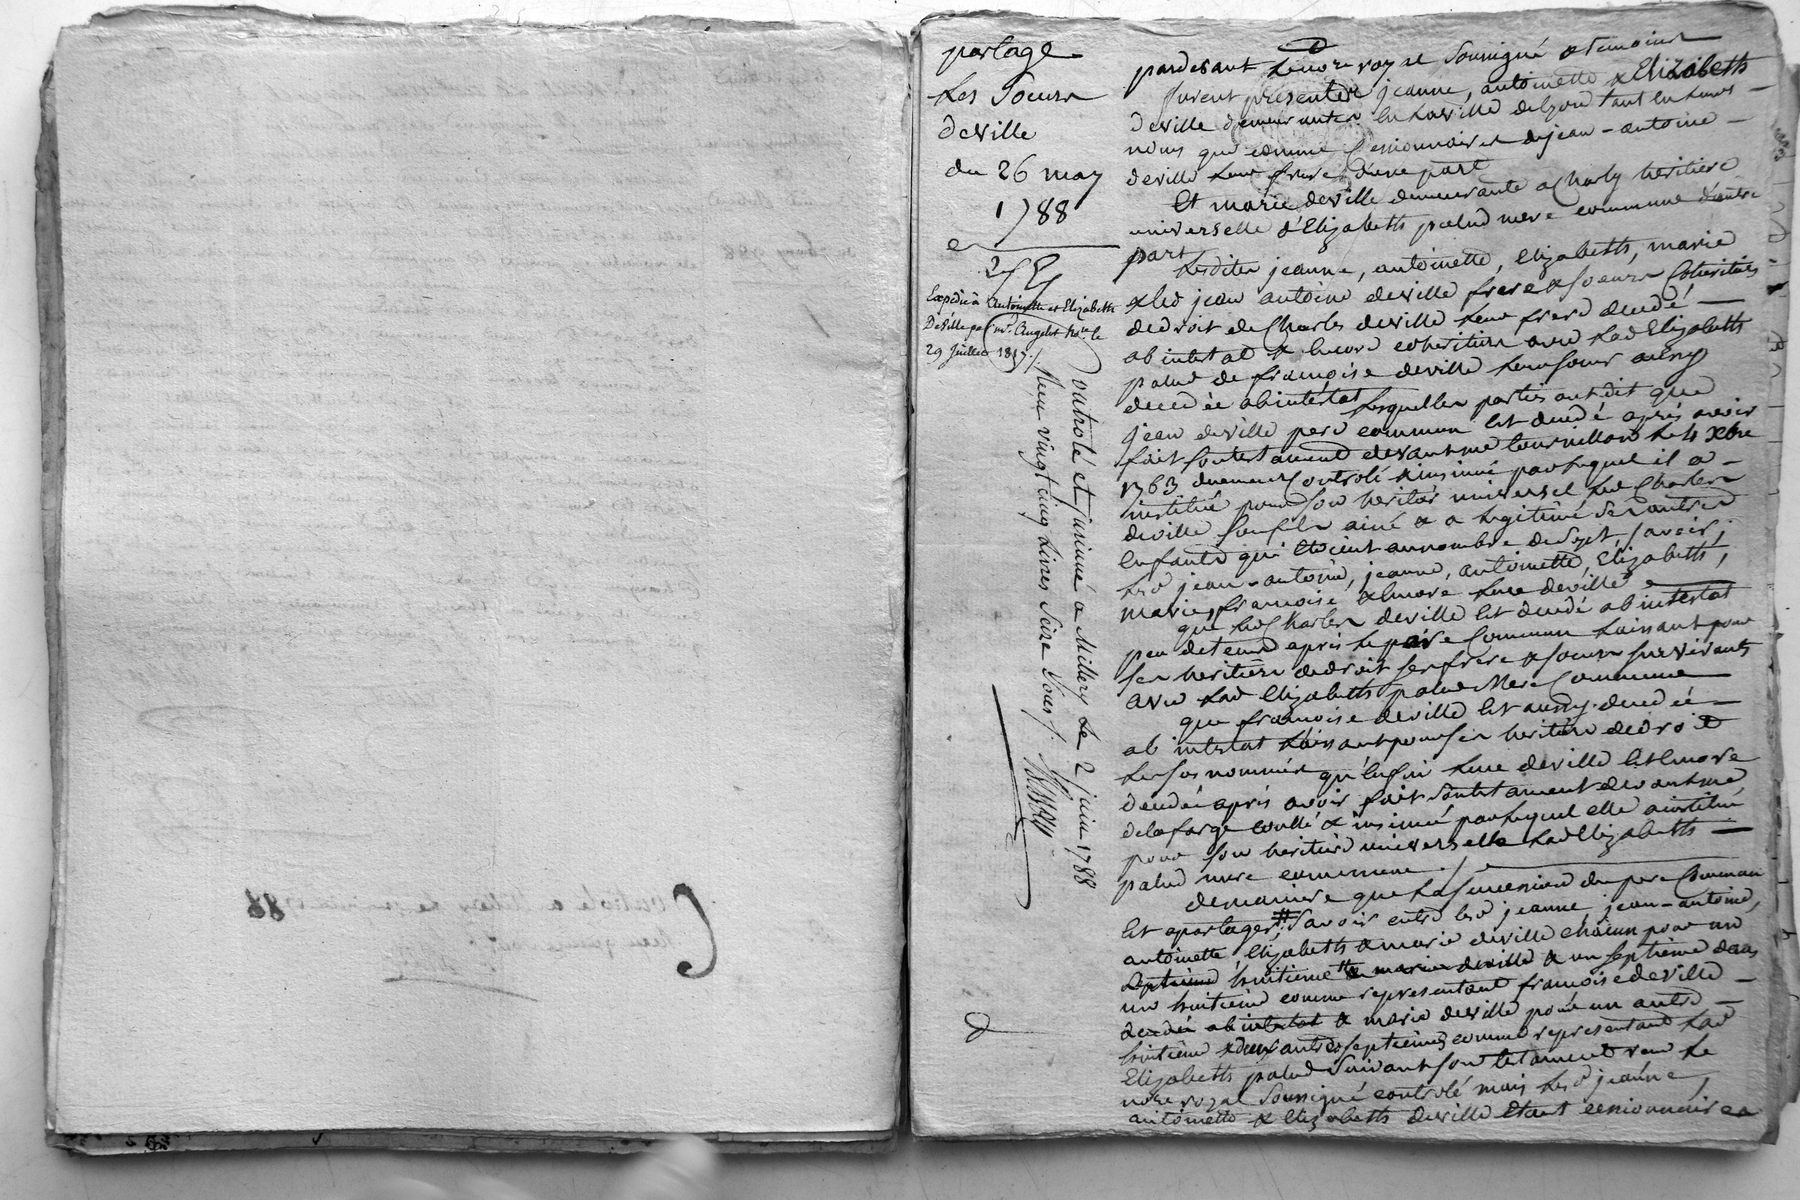 partage
Les Soeurs
deville
du 26 may
1788
Expédié à Antoinette et Elizabeth
Deville par mr. Angelot Nre. le
29 Juillet
Controlé et insinué a Millery Le 2 juin 1788
Reçu vingt cinq Livres Seize Sous /.
pardevant Le notre royal Soussigné & temoins
furent presentes jeanne, antoinette & Elizabeth
deville demeurantes en La ville de Lyon tant en Leurs
noms que comme Cessionnaires de jean-antoine
deville Leur frere d'une part
Et marie deville demeurante a Charly heritiere
universelle d'Elizabeth palud mere commune d'autre
part
Lesdites jeanne, antoinette, Elizabeth, marie
& led jean antoine deville frere & soeurs Coheritiers
de droit de Charles deville Leur frere decedé
ab intestat & encore coheritiers avec Lad Elizabeth
palud de françoise deville Leur soeur aussy
decedée ab intestat Lesquelles parties ont dit que
jean deville pere commun Est decedé aprés avoir
fait son testament devant me tournillon Le 4 Xbre
1763 duement Controlé & insinué par Lequel il a
institué pour son heritier universel Led Charles
deville son fils ainé & a Legitimé Ses autres
Enfants qui Etoient au nombre de Sept, savoir,
Led jean-antoine, jeanne, antoinette, Elizabeth,
marie, françoise & encore Luce deville
que Led Charles deville Est decedé ab intestat
peu de tems après Le père Commun Laissant pour
ses heritiers de droit ses frere & soeurs survivants
avec Lad Elizabeth palud Mere Commune
que françoise deville Est aussy decedée
ab intestat Laissant pour ses heritiers de droit
Les sus nommés qu'enfin Luce deville Est encore
decedée aprés avoir fait son testament devant me
delaforge conllé & insinué par Lequel elle a institué
pour son heritiere universelle Lad Elizabeth
palud mere commune ./
de maniere que La succession du pere Commun
Est a partager # savoir entre Led jeanne, jean-antoine,
antoinette, Elizabeth & marie deville chacun pour un
septieme huitieme & marie deville & un septieme dans
un huitieme comme representant françoise deville
decedée ab intestat & marie deville pour un autre
huitieme & deux autres septiemes comme representant Lad
Elizabeth palud Suivant son testament reçu Le
notre royal Soussigné controlé mais Lesd jeanne,
antoinette & Elizabeth deville Etant cessionnaires